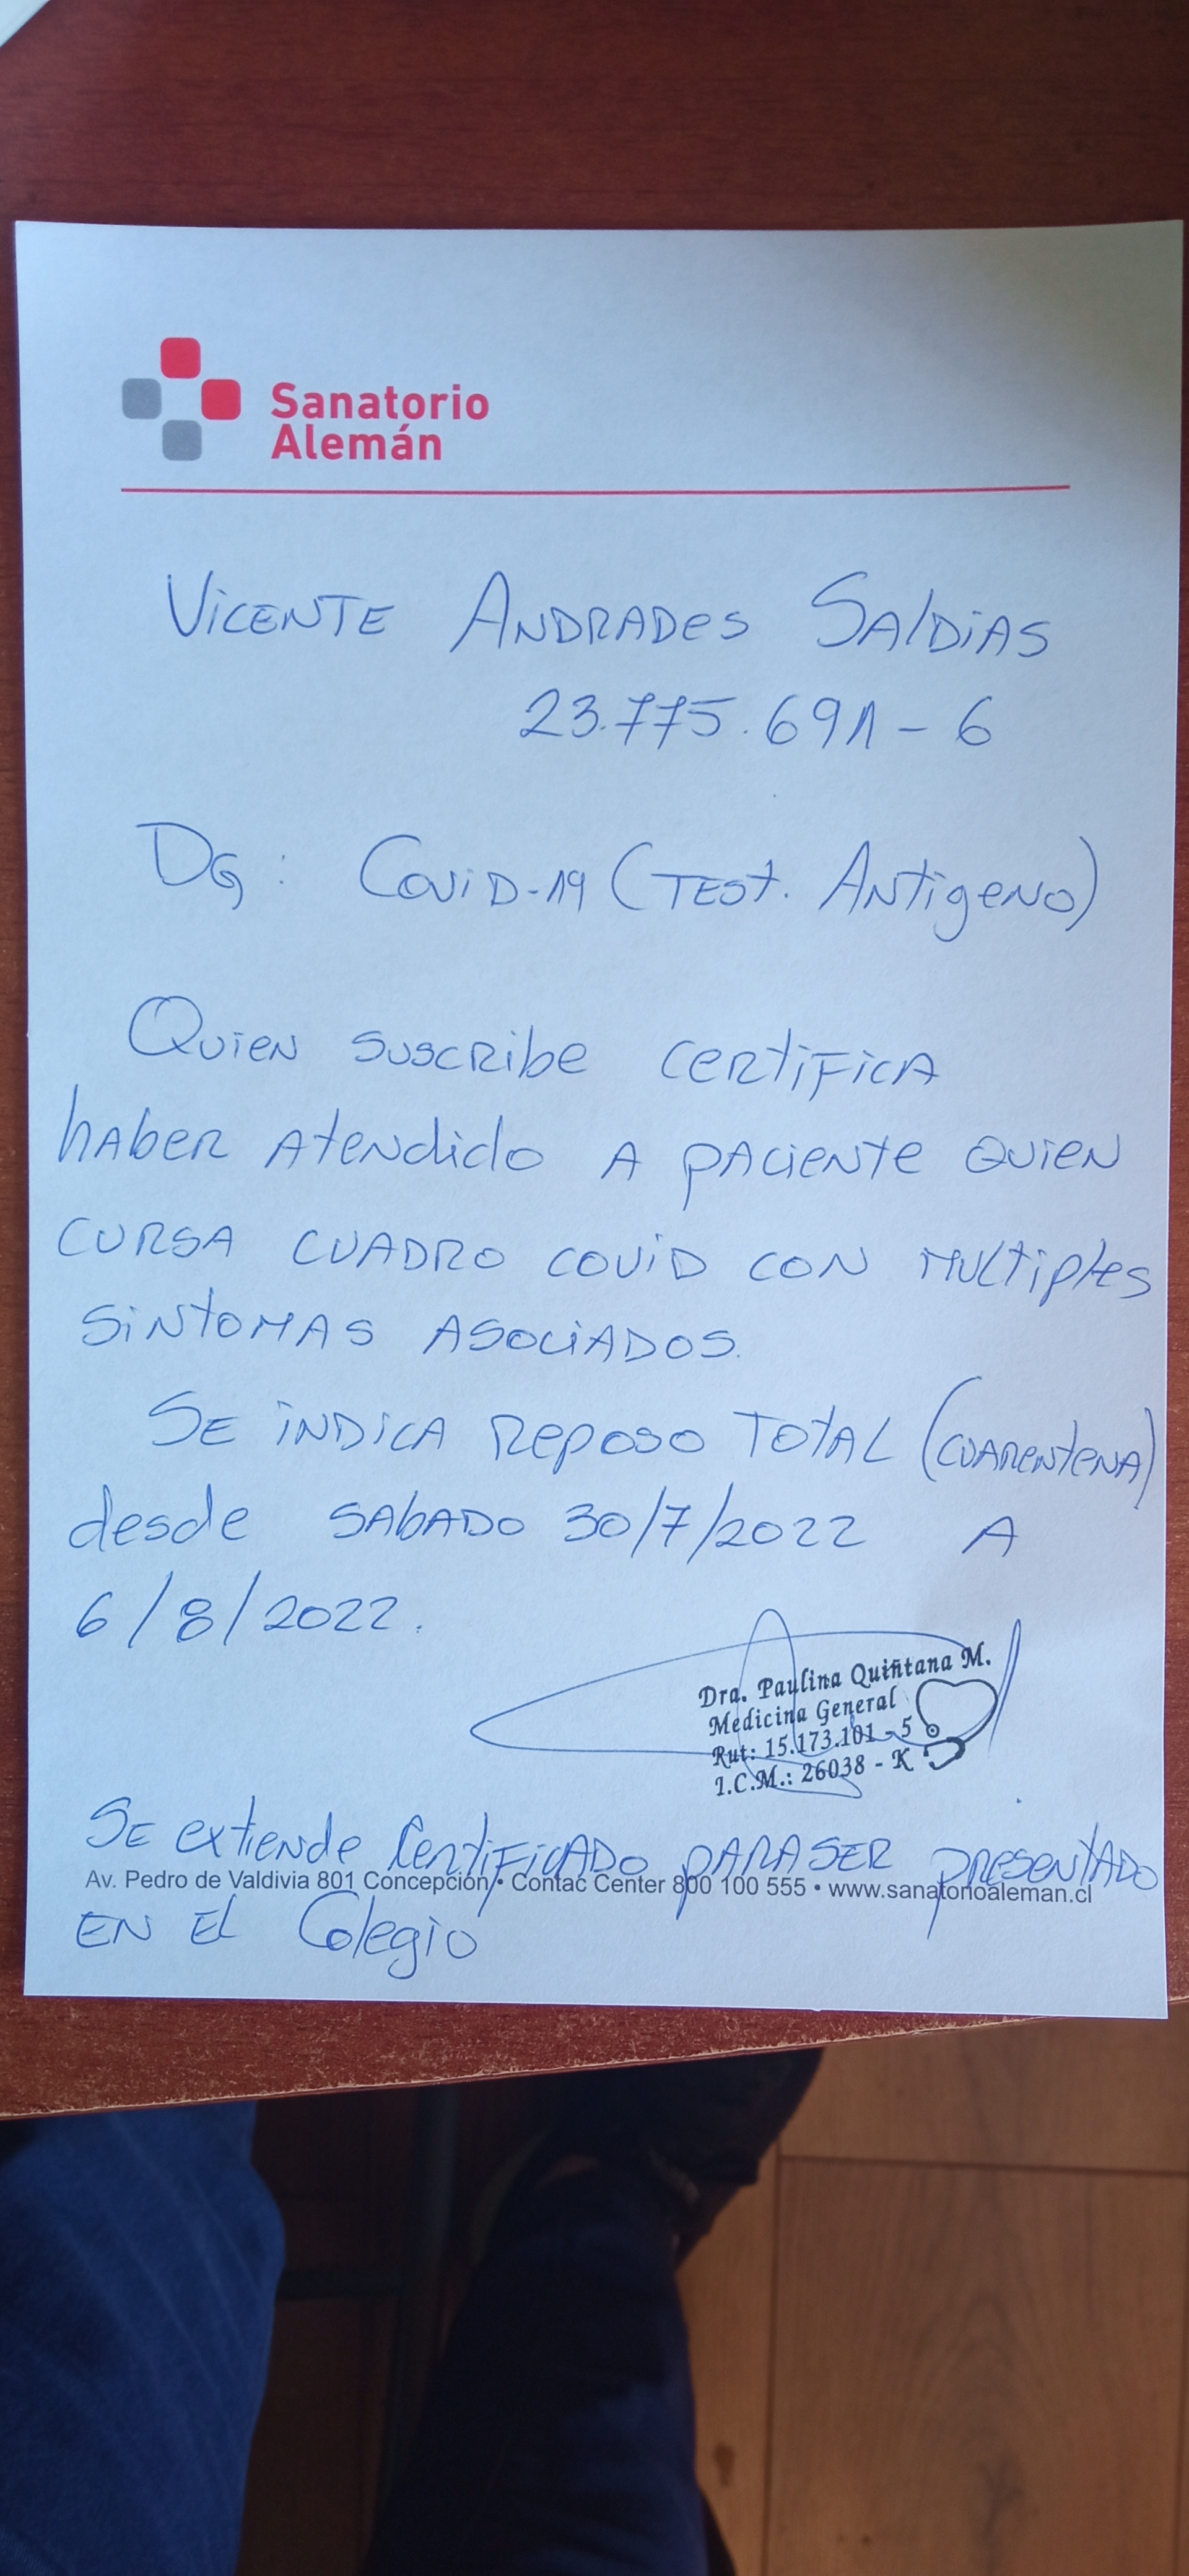 Sanatorio
Alemán
Vicente Andrades Saldias
23.775.691-6
Dg: Covid-19 (Test. Antigeno)
Quien suscribe certifica
haber atendido a paciente quien
cursa cuadro covid con multiples
sintomas asociados.
Se indica reposo total (cuarentena)
desde sabado 30/7/2022 a
6/8/2022.
Dra. Paulina Quintana M.
Medicina General
Rut: 15.173.101-5
I.C.M.: 26038-K
Se extiende Certificado para ser presentado
Av. Pedro de Valdivia 801 Concepción • Contac Center 800 100 555 • www.sanatorioaleman.cl
en el Colegio